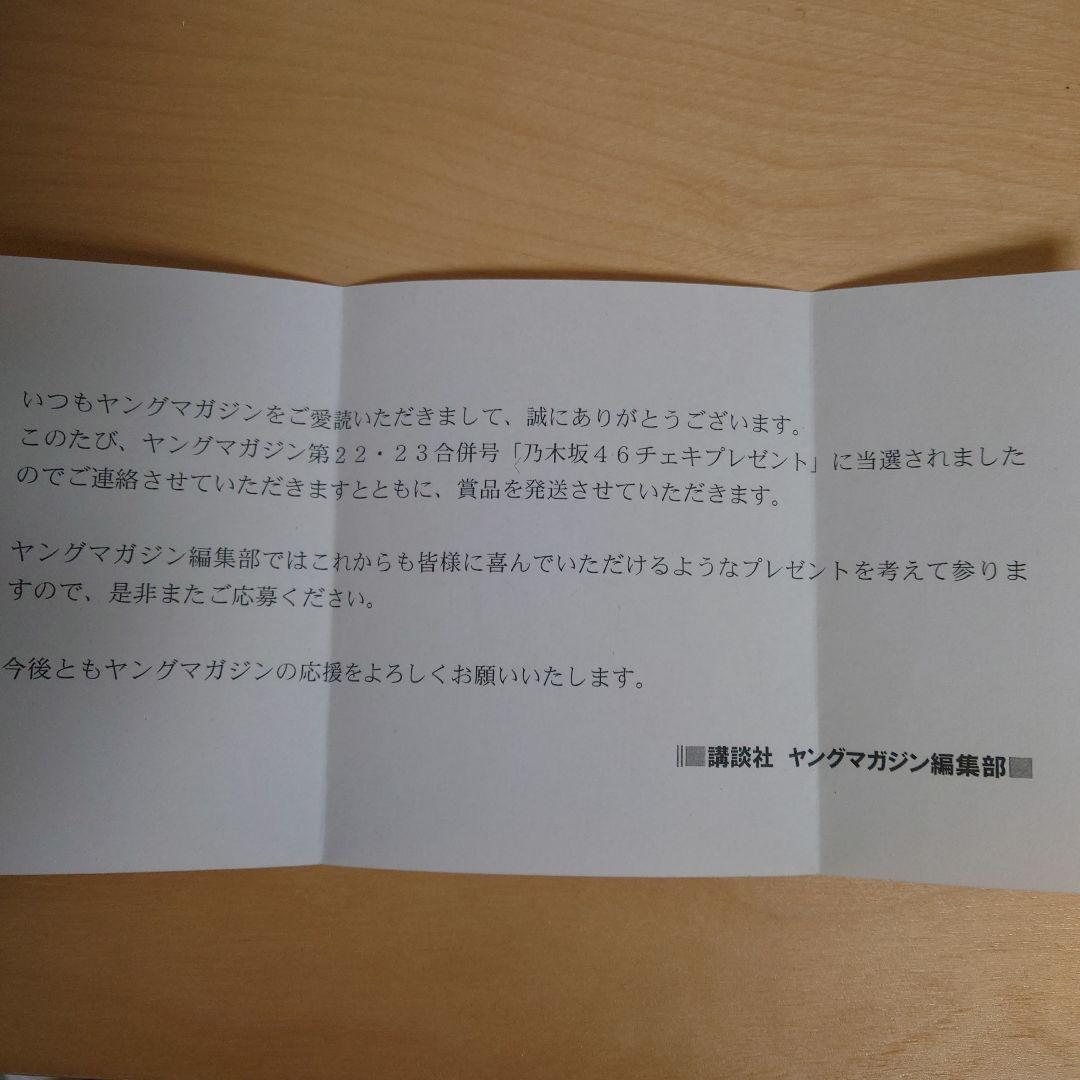 いつもヤングマガジンをご愛読いただきまして、誠にありがとうございます。
このたび、ヤングマガジン第22・23合併号「乃木坂46チェキプレゼント」に当選されました
のでご連絡させていただきますとともに、賞品を発送させていただきます。
ヤングマガジン編集部ではこれからも皆様に喜んでいただけるようなプレゼントを考えて参りま
すので、是非またご応募ください。
今後ともヤングマガジンの応援をよろしくお願いいたします。
講談社 ヤングマガジン編集部